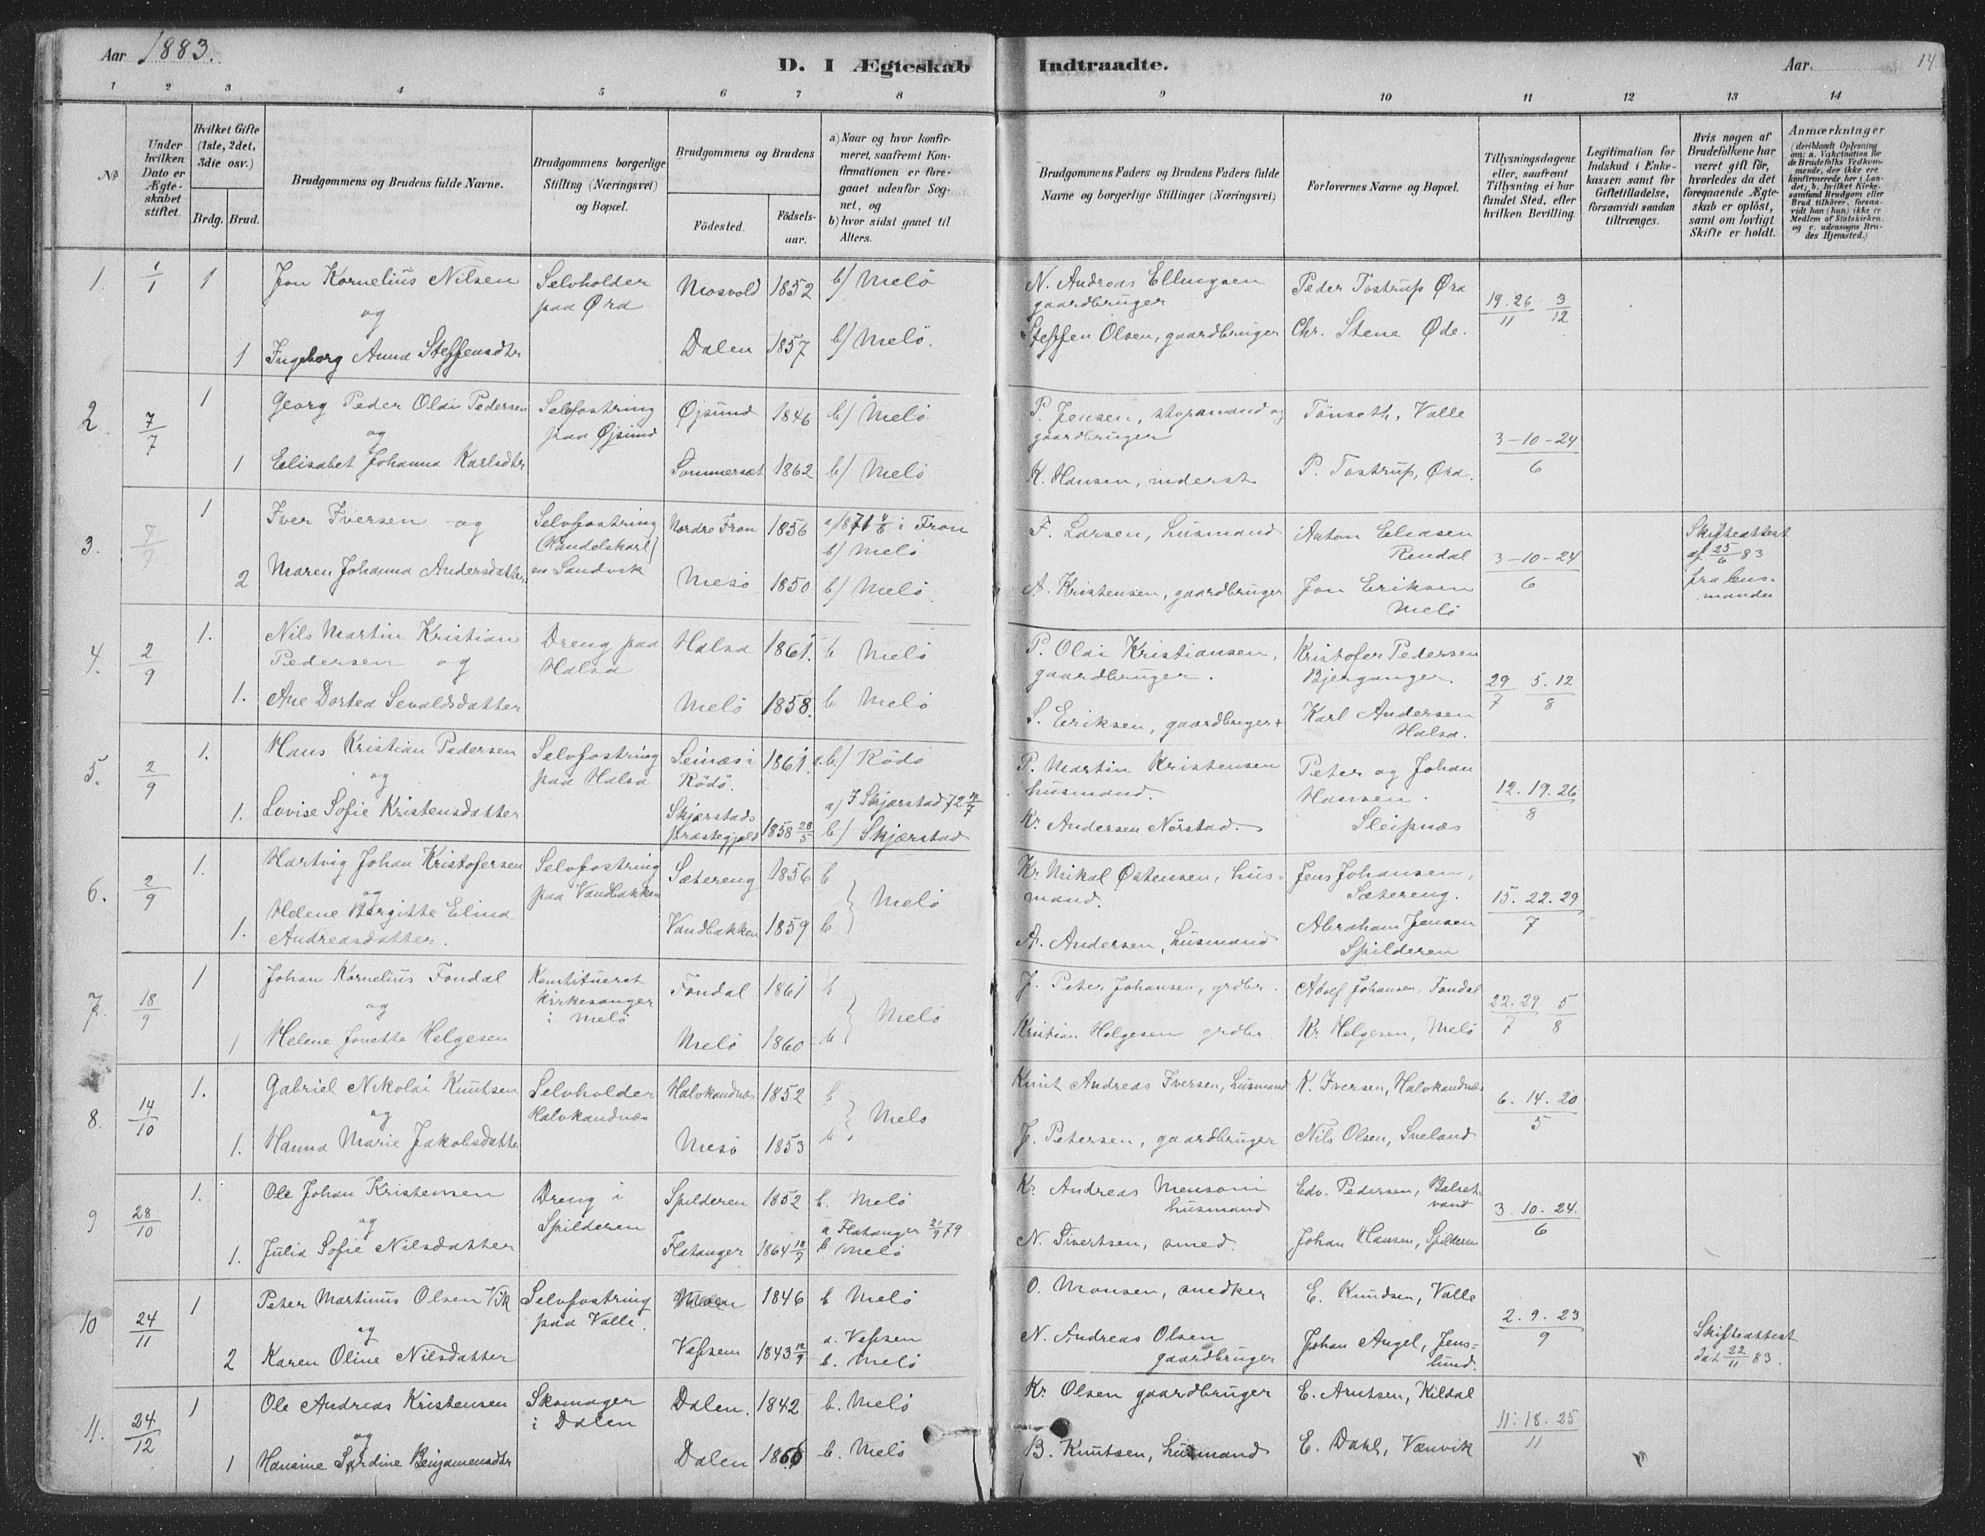 Aar 1883.
D. I Ægteskab Indtraadte.
Aar 14
1 2 3 4 5 6 7 8 9 10 11 12 13 14
No
Under hvilken Dato er Ægteskabet stiftet.
Hvilket Gifte (1ste, 2det, 3die osv.)
Brdg. Brud.
Brudgommens og Brudens fulde Navne.
Brudgommens borgerlige Stilling (Næringsvei) og Bopæl.
Brudgommens og Brudens
Födested. Födselsaar.
a) Naar og hvor konfirmeret, saafremt Konfirmationen er foregaaet udenfor Sognet, og
b) hvor sidst gaaet til Alters.
Brudgommens Faders og Brudens Faders fulde Navne og borgerlige Stillinger (Næringsvei)
Forlovernes Navne og Bopæl.
Tillysningsdagene eller, saafremt Tillysning ei har fundet Sted, efter hvilken Bevilling.
Legitimation for Indskud i Enkekassen samt for Giftetilladelse, forsaavidt saadan tiltrænges.
Hvis nogen af Brudefolkene har været gift för, hvorledes da det foregaaende Ægteskab er oplöst, samt om lovligt Skifte er holdt.
Anmærkninger (deriblandt Oplysning om: a. Vakcination for de Brudefolks Vedkommende, der ikke ere konfirmerede her i Landet; b. hvilket Kirkesamfund Brudgom eller Brud tilhörer, forsaavidt han (hun) ikke er Medlem af Statskirken, og c. udensogns Brudes Hjemsted.)
1. 1/1 1 Jon Kornelius Nilsen Selvholder Mosvold 1852 b/ Melö N. Andreas Ellingsen Peder Tostrup Øra 19. 26/11 3/12
og paa Øra gaardbruger
1 Ingeborg Anna Steffensdter Dalen 1857 b/ Melö. Steffen Olsen, gaardbruger Chr. Stene Øde.
2. 7/7 1 Georg Peder Olai Pedersen Selvfostring Øjsund 1846 b/ Melö P. Jensen, Tönseth, Valle 3-10-24/6
og paa Øjsund gaardbruger
1 Elisabet Johanna Karlsdter Sommersæt 1862 b/ Melö K. Hansen, inderst P. Tostrup, Øra.
3. 7/7 1 Iver Iversen og Selvfostring Nordre Fron 1856 a/ 1871 i Fron F. Larsen, husmand Anton Eliasen Skifteattest
(Handelskarl) b/ Melö Rendal 3-10-24/6 af 25/6 83
2 Maren Johanna Andersdatter Sandvik Mesö 1850 b/ Melö. A. Kristensen, gaardbruger Jon Eriksen fra Lens-
Melö manden
4. 2/9 1. Nils Martin Kristian Dreng paa Halsa 1861. b Melö P. Olai Kristiansen, Kristofer Pedersen
Pedersen og Halsa gaardbruger. Bjerganger. 29/7 5. 12/8
1. Ane Dortea Sevaldsdatter Melö 1858. b Melö S. Eriksen, gaardbruger Karl Andersen
Halsa.
5. 2/9 1. Hans Kristian Pedersen Selvfostring i 1861. b/ Rödö P. Martin Kristensen Peter og Johan
og paa Halsa Rödö. husmand. Hansen. 12. 19. 26/8
1. Lovise Sofie Kristensdatter Skjerstads a) I Skjerstad 72
præstegjeld 1858 28/5 b/ Skjærstad Kr. Andersen Nörstad. Sleipnæs
6. 2/9 1. Hartvig Johan Kristofersen Selvfostring Sætereng 1856 b Kr. Mikal Östensen, hus- Jens Johansen,
og paa Vandbakken Melö mand. Sætereng. 15. 22. 29/7
1. Helene Birgitte Elina Vandbakken 1859 b Abraham Jensen
Andreasdatter. A. Andersen, husmand Spilderen
7. 18/9 1 Johan Kornelius Fondal Konstitueret Fondal 1861 b J. Peter Johansen, grdbr. Adolf Johansen, Fondal 22. 29/7 5/8
og kirkesanger Melö
i Melö
1 Helene Jonette Helgesen Melö 1860 b Kristian Helgesen grdbr. Kr. Helgesen, Melö
8. 14/10 1. Gabriel Nikolai Knutsen Selvholder Halvkandnæs 1852 b Knut Andreas Iversen, husmand K. Iversen, Halvkandnæs 6. 14. 20/5
og Halvkandnæs Melö
1. Hanna Marie Jakobsdatter Mesö 1853 b. J. Petersen, gaardbruger Nils Olsen, Sneland
9 28/10 1. Ole Johan Kristensen Dreng i Spilderen 1852 b. Melö Kr. Andreas Edv. Pedersen, Balset- 3. 10. 24./6
og Spilderen a Flatanger 21/9 79 husmand vand
1. Julia Sofie Nilsdatter Flatanger 1864 18/7 b. Melö N. Sivertsen, smed. Johan Hansen, Spilderen
10 24/11 1 Peter Martinus Olsen Vik Selvfostring 1846 b Melö O. Monsen, snedker E. Knudsen, Valle 2. 9. 23/9
og paa Valle. a. Vefsen N. Andreas Olsen Skifteattest
2 Karen Oline Nilsdatter Vefsen 1843 b. Melö gaardbruger Johan Angel, Jens- dat 22/11 83.
lund.
11. 24/12 1 Ole Andreas Kristensen Skomager Dalen. 1842 b. Melö Kr. Olsen gaardbruger E. Arntsen, Kildal 11. 18. 25/11
og i Dalen
1 Hansine Sardine Benjamensdter Dalen 1866 b. Melö B. Knutsen, husmand E. Dahl, Vænvik